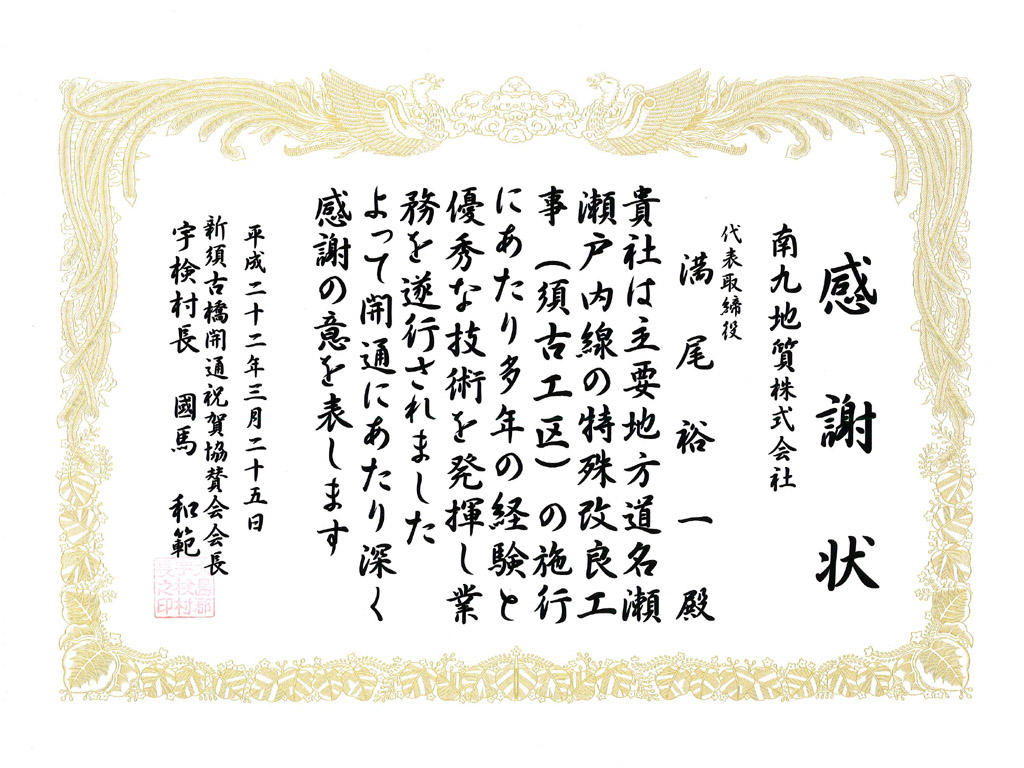 感謝状
南九地質株式会社
代表取締役
満尾裕一殿
貴社は主要地方道名瀬
瀬戸内線の特殊改良工
事(須古工区)の施行
にあたり多年の経験と
優秀な技術を発揮し業
務を遂行されました
よって開通にあたり深く
感謝の意を表します
平成二十二年三月二十五日
新須古橋開通祝賀協賛会会長
宇検村長 國馬 和範